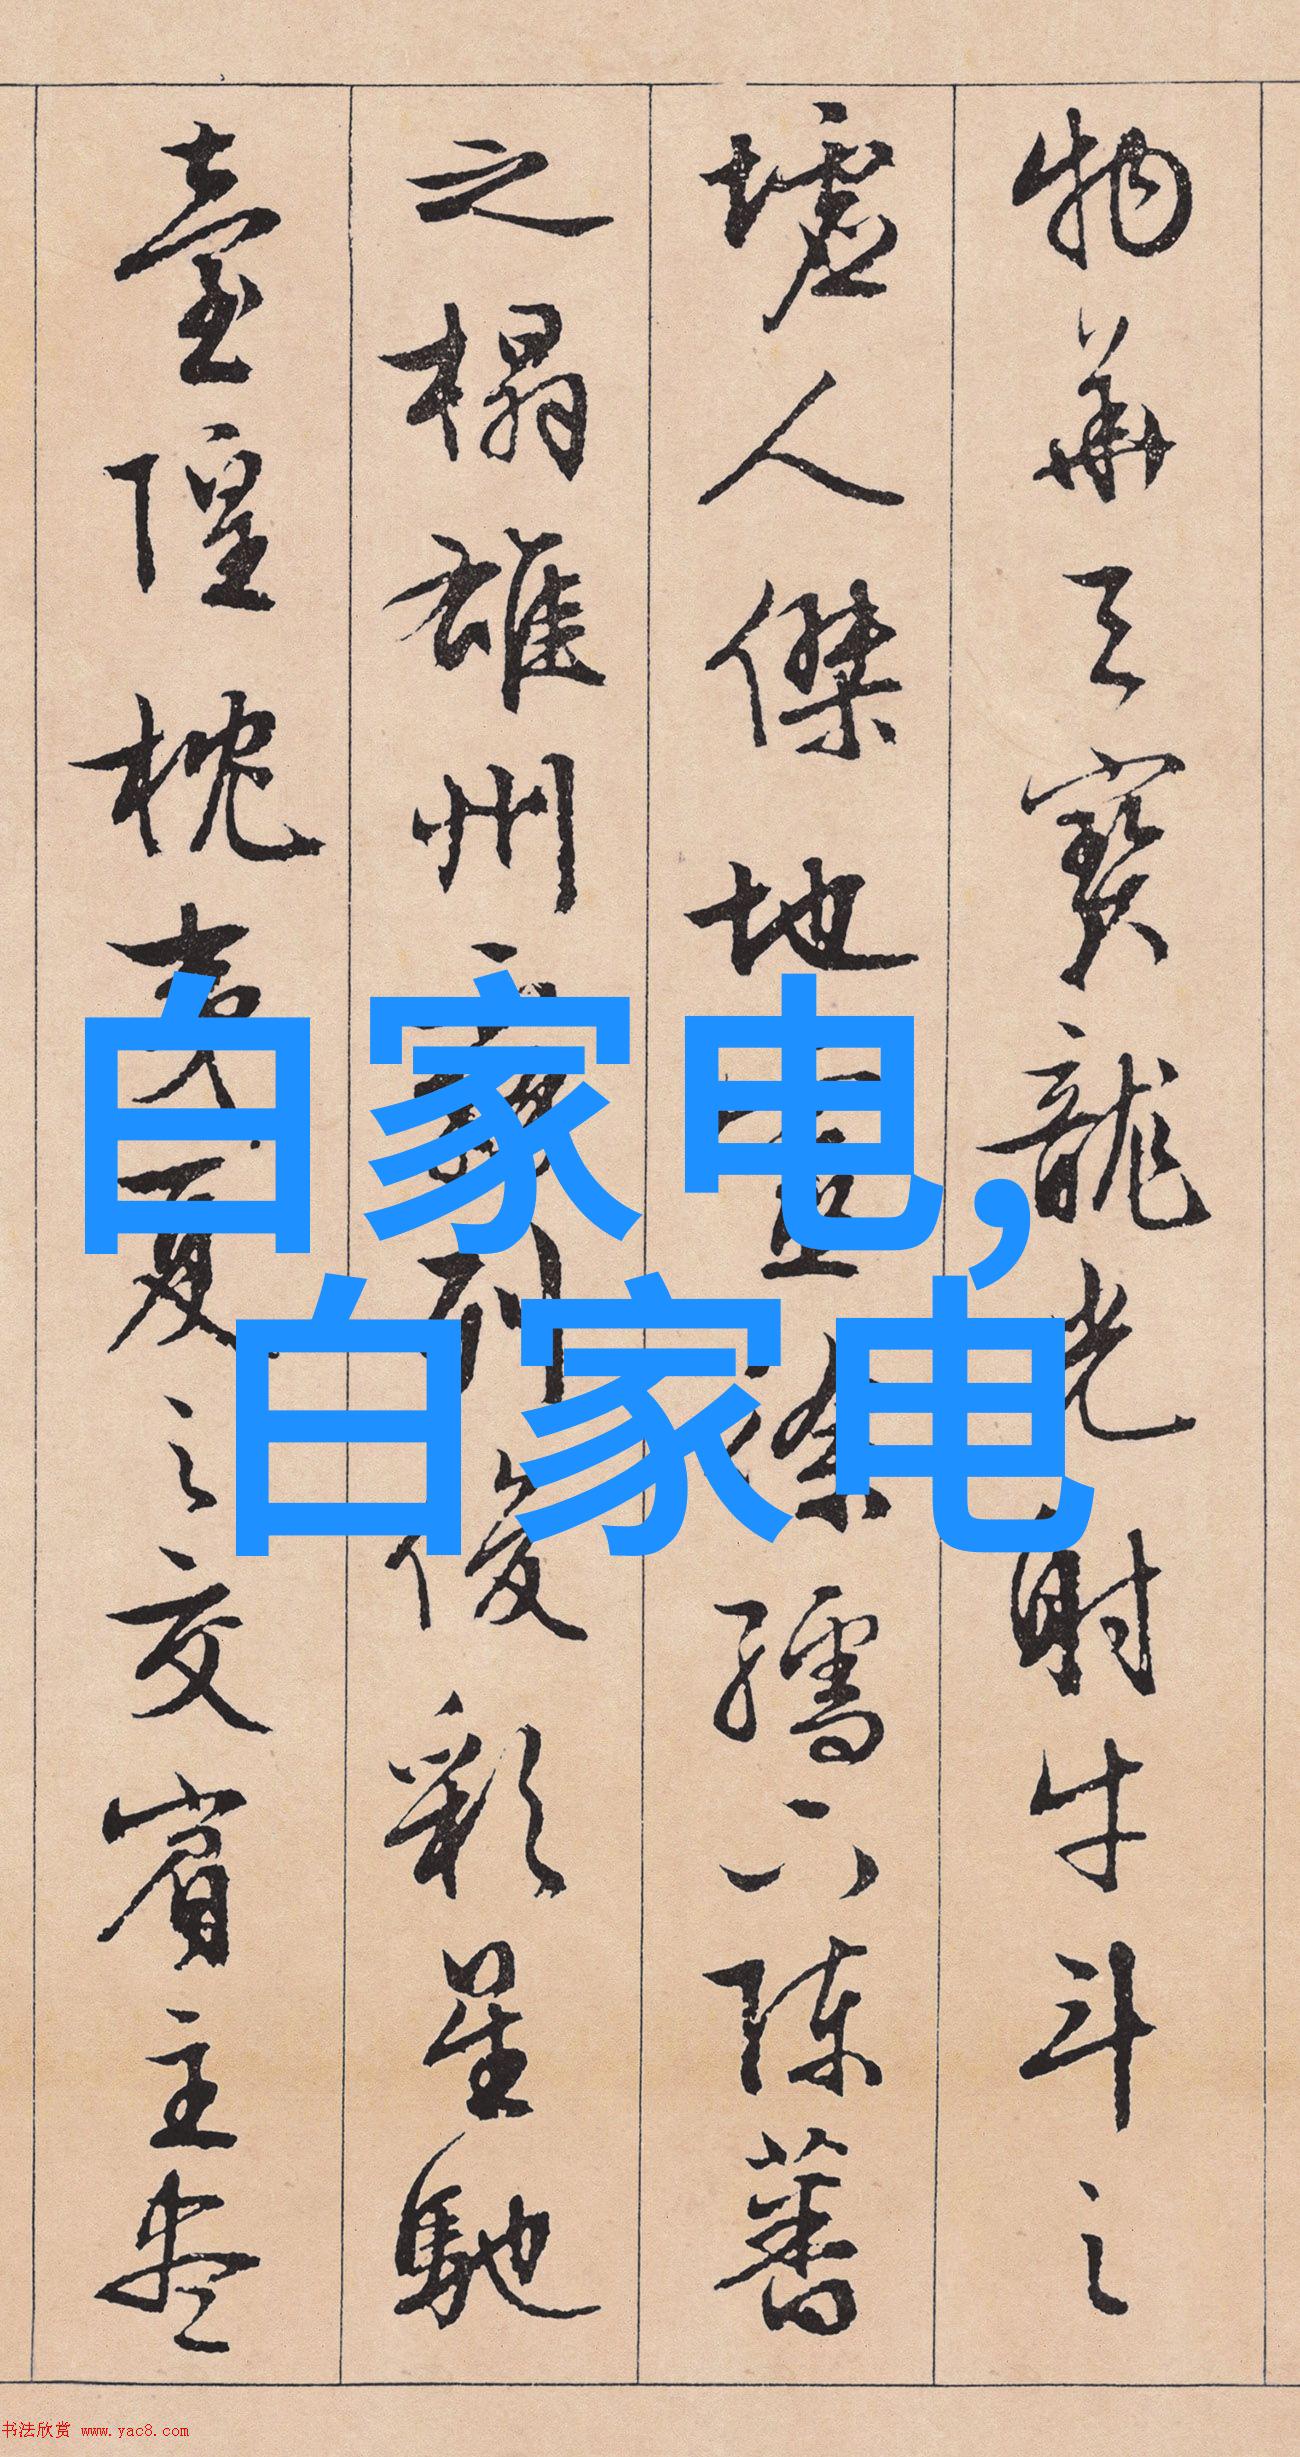 物华天寶龍光射牛斗之
墟人傑地靈徐孺下陳蕃
之榻雄州霧列俊彩星馳
臺隍枕夷夏之交賓主盡
白家电,
白家电
书法欣赏 www.yac8.com